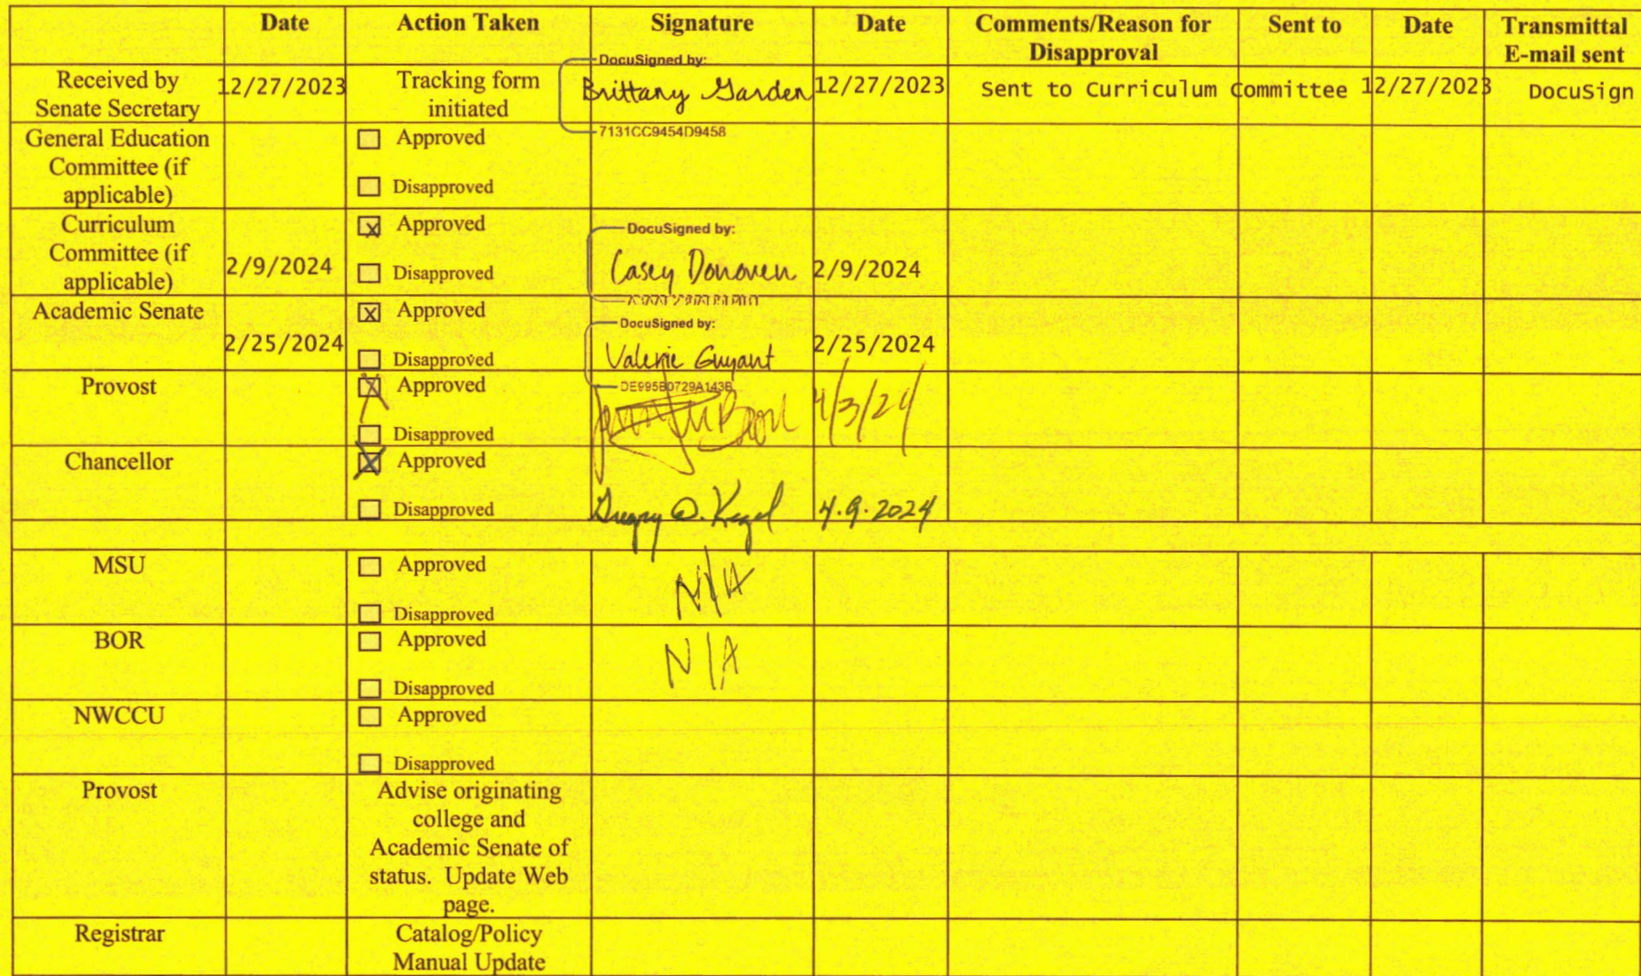 Date Action Taken Signature Date Comments/Reason for Disapproval Sent to Date Transmittal E-mail sent
DocuSigned by:
Received by Senate Secretary 12/27/2023 Tracking form initiated Brittany Garden 12/27/2023 Sent to Curriculum Committee 12/27/2023 DocuSign
7131CC9454D9458
General Education Committee (if applicable)
Approved
Disapproved
Curriculum Committee (if applicable) 2/9/2024
Approved
Disapproved
DocuSigned by:
Casey Donoven 2/9/2024
Academic Senate 2/25/2024
Approved
Disapproved
DocuSigned by:
Valerie Guyant 2/25/2024
DE995B0729A143B
Provost
Approved
Disapproved
4/3/24
Chancellor
Approved
Disapproved
Gregory D. Kegel 4.9.2024
MSU
Approved
Disapproved
N/A
BOR
Approved
Disapproved
N/A
NWCCU
Approved
Disapproved
Provost
Advise originating
college and
Academic Senate of
status. Update Web
page.
Registrar
Catalog/Policy
Manual Update